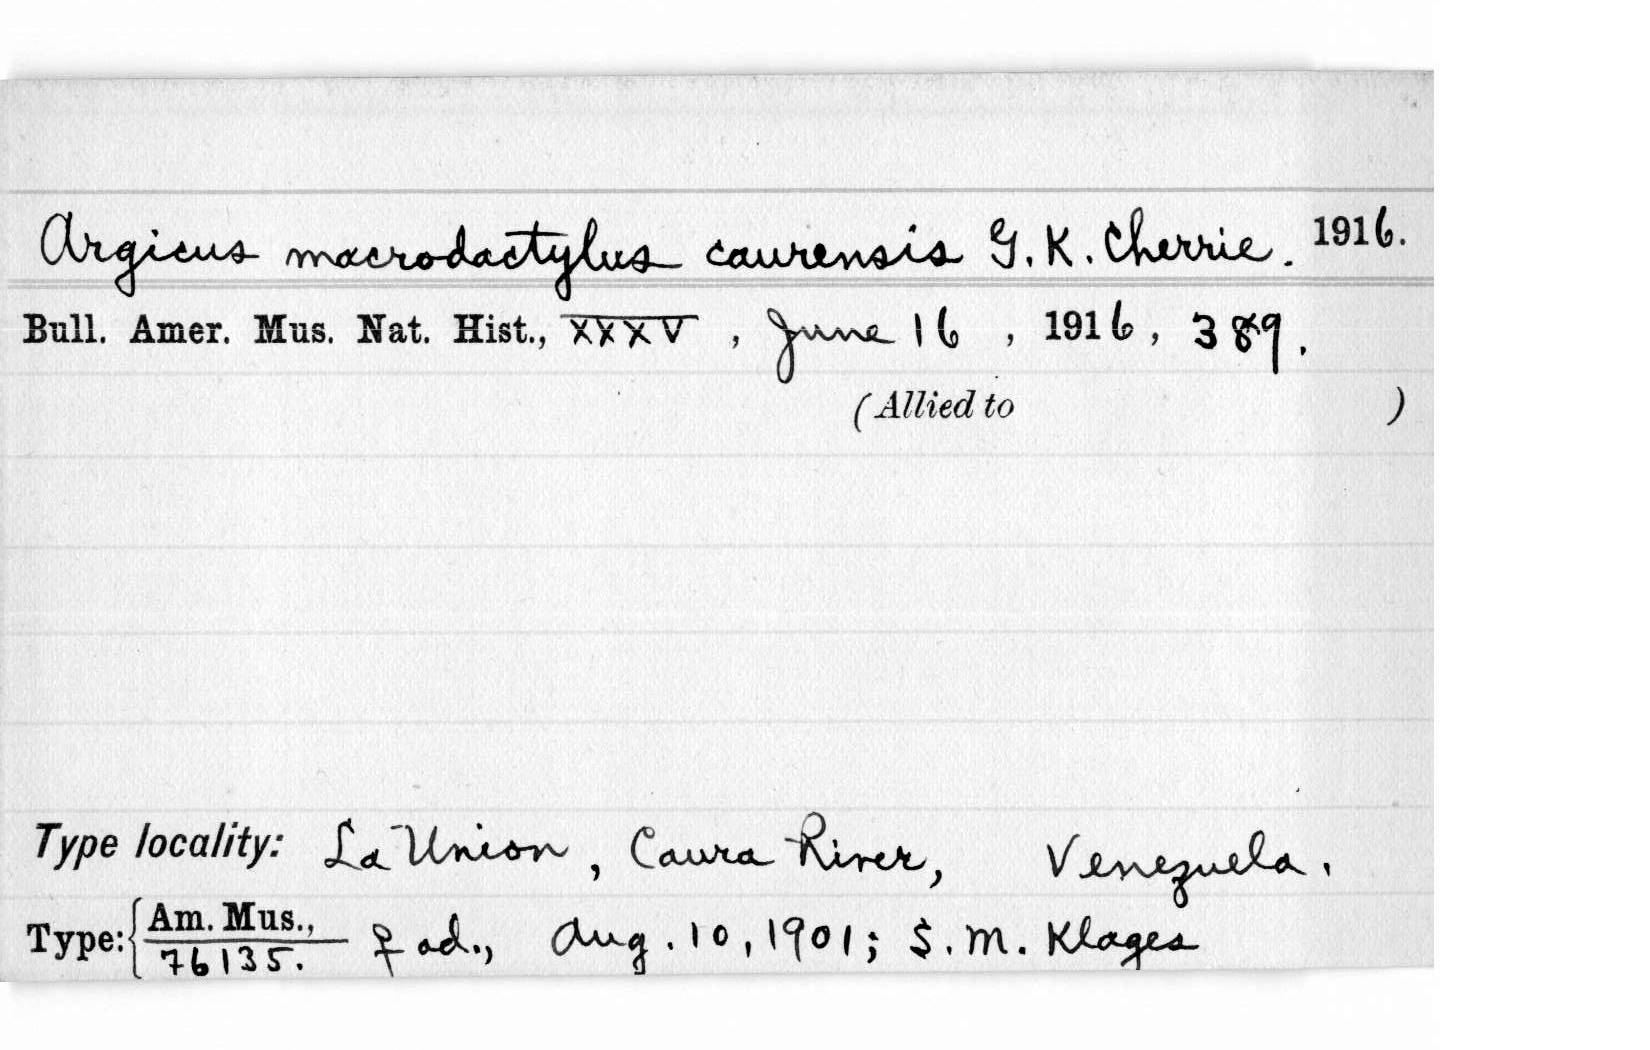 Argicus macrodactylus caurensis G. K. Cherrie. 1916.
Bull. Amer. Mus. Nat. Hist., XXXV, June 16, 1916, 389.
(Allied to )
Type locality: La Union, Caura River, Venezuela.
Type: { Am. Mus., ♀ ad., Aug. 10, 1901; S. M. Klages
76135.